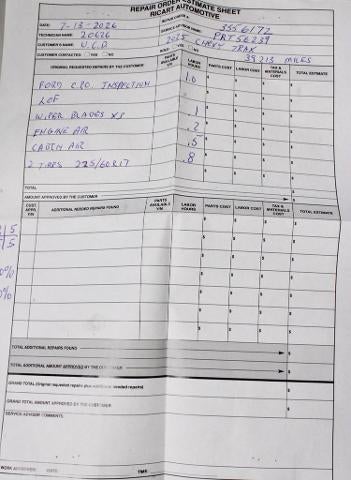 REPAIR ORDER ESTIMATE SHEET
RICART AUTOMOTIVE
DATE: 7-13-2026
3556172
TECHNICIAN NAME: 20626
PRT56239
CUSTOMER'S NAME: U.C.D.
2025 CHEVY TRAX
CUSTOMER CONTACTED: YES NO
SOLD: YES NO
39213 MILES
ORIGINAL REQUESTED REPAIRS BY THE CUSTOMER PARTS AVAILABLE Y/N LABOR HOURS PARTS COST LABOR COST TAX & MATERIALS COST TOTAL ESTIMATE
FORD CPO INSPECTION 1.0
LOF
WIPER BLADES X3 .1
ENGINE AIR .2
CABIN AIR .5
2 TIRES 225/60R17 .8
TOTAL
AMOUNT APPROVED BY THE CUSTOMER
CUST. APPR. Y/N ADDITIONAL NEEDED REPAIRS FOUND PARTS AVAILABLE Y/N LABOR HOURS PARTS COST LABOR COST TAX & MATERIALS COST TOTAL ESTIMATE
TOTAL ADDITIONAL REPAIRS FOUND
TOTAL ADDITIONAL AMOUNT APPROVED BY THE CUSTOMER
GRAND TOTAL (Original requested repairs plus additional needed repairs)
GRAND TOTAL AMOUNT APPROVED BY THE CUSTOMER
SERVICE ADVISOR COMMENTS:
WORK AUTHORIZED DATE: TIME